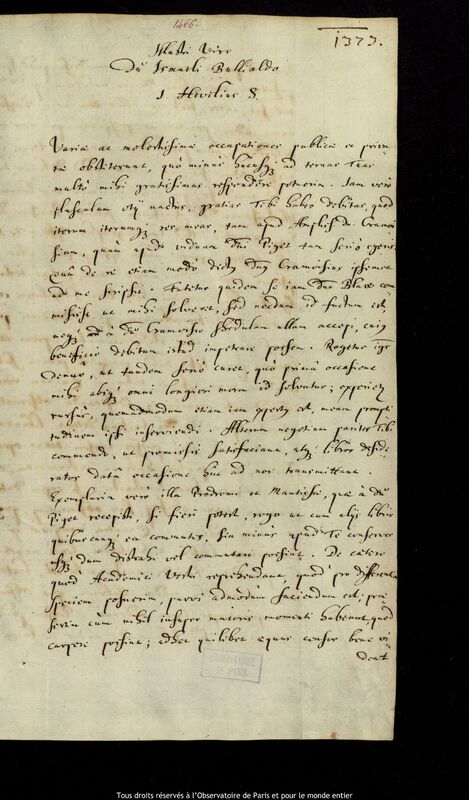 1466.
1373.
Illustri Viro
Dn Ismaeli Bullialdo
J. Hevelius S.
Variæ ac molestissimæ occupationes publicæ et priva
tæ obstiterunt, quò minus hucusq; ad ternas Tuas
multò mihi gratissimas respondere potuerim. Jam verò
plusculum otij nactus, gratias Tibi habeo debitas, quod
iterum iterumq; res meas, tam apud Ampliss. Dn. Cramoi
sium, quàm apud viduam Dni Piget tam seriò egeris.
Quâ de re etiam modò dictus Dn9 Cramoisius ipsemet
ad me scripsit. Fatetur quidem se iam Dno Blaeu com
misisse ut mihi solveret, sed nondum id factum est,
neq; à Dno Cramoisio schedulam ullam accepi, cuius
beneficio debitum istud impetrare possem. Rogetur igr
denuò, ut tandem seriò curet, quò primâ occasione
mihi absq; omni longiori mora id solvatur; experietur
rursùs, quemadmodum etiam iam expertus est, meam prompti
tudinem ipsi inserviendi. Alterum negotium pariter Tibi
commendo, ut promissis satisfaciant, atq; libros deside
ratos datâ occasione huc ad nos transmittant.
Exemplaria vero illa Prodromi et Mantissæ, quæ à Dno
Piget recepisti, si fieri potest, rogo ut cum alijs libris
quibuscunq; ea commutes, sin minus apud Te conserves
usq; dum distrahi vel commutari possint. De cætero
quod Academici Vestri reprehendant, quod pro differentia
speciem posuerim, parvi admodum faciendum est; præ
sertim cùm nihil insuper maioris momenti habeant, quod
carpere possint; adhæc quilibet æquus censor bene vi
deat
OBSERVATOIRE
DE PARIS
Tous droits réservés à l'Observatoire de Paris et pour le monde entier